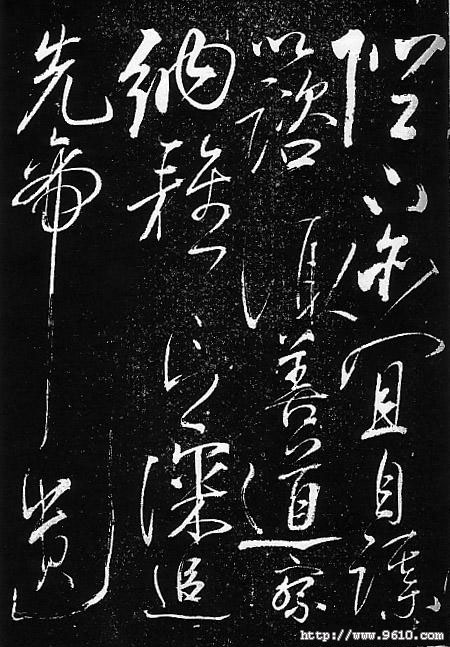 陛下亦宜自謀
以諮諏善道察
納雅言深追
先帝遺
http://www.9610.com